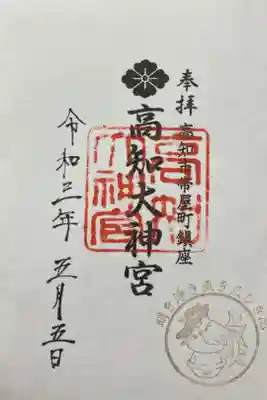 奉拝
高知市帯屋町鎮座
高知大神宮
令和三年 五月五日